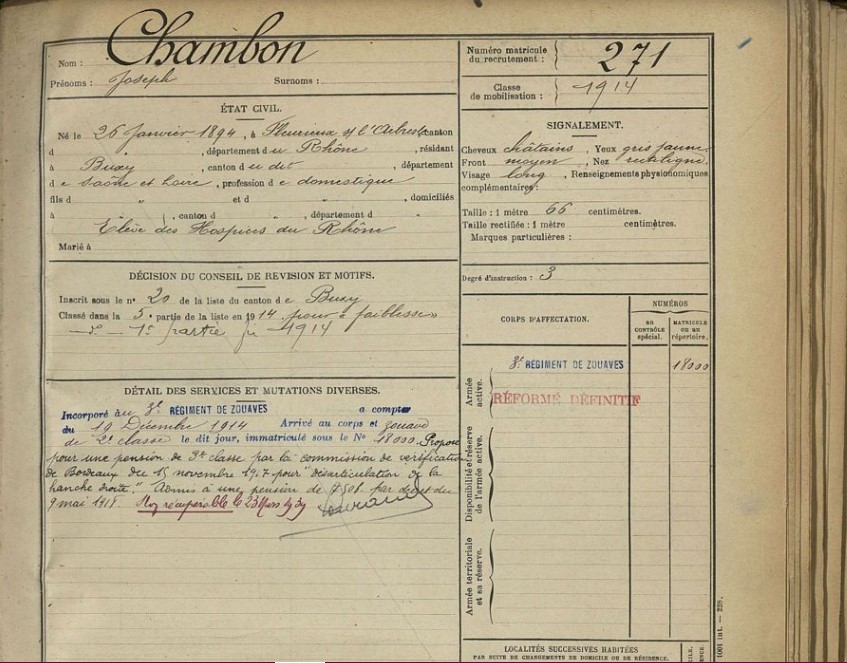 Nom : Chambon
Prénoms : Joseph Surnoms :
ÉTAT CIVIL.
Né le 26 Janvier 1894, à Fleurieux s/ l'Arbresle canton
d " , département du Rhône , résidant
à Buxy , canton du dit , département
de Saône et Loire , profession de domestique
fils d " et d " , domiciliés
à , canton d , département d
Elève des Hospices du Rhône
Marié à
DÉCISION DU CONSEIL DE REVISION ET MOTIFS.
Inscrit sous le n° 20 de la liste du canton de Buxy
Classé dans la 5e partie de la liste en 1914 pour " faiblesse "
1e partie 1914
DÉTAIL DES SERVICES ET MUTATIONS DIVERSES.
Incorporé au 3e RÉGIMENT DE ZOUAVES a compter
du 19 Décembre 1914 Arrivé au corps et zouave
de 2e classe le dit jour, immatriculé sous le No 18000. Proposé
pour une pension de 3e classe par la commission de vérification
de Bordeaux du 15 novembre 1917 pour "désarticulation de la
hanche droite." Admis à une pension de par décret du
9 mai 1918. récupérable le 23 Mars
Numéro matricule
du recrutement : 271
Classe
de mobilisation : 1914
SIGNALEMENT.
Cheveux châtains , Yeux gris jaune
Front moyen , Nez rectiligne.
Visage long , Renseignements physionomiques
complémentaires :
Taille : 1 mètre 66 centimètres.
Taille rectifiée : 1 mètre centimètres.
Marques particulières :
Degré d'instruction : 3
CORPS D'AFFECTATION.
NUMÉROS
AU
CONTRÔLE
spécial.
MATRICULE
OU AU
répertoire.
Armée
active.
3e RÉGIMENT DE ZOUAVES 18000
RÉFORMÉ DÉFINITIF
Disponibilité et réserve
de l'armée active.
Armée territoriale
et sa réserve.
LOCALITÉS SUCCESSIVES HABITÉES
PAR SUITE DE CHANGEMENTS DE DOMICILE OU DE RÉSIDENCE.